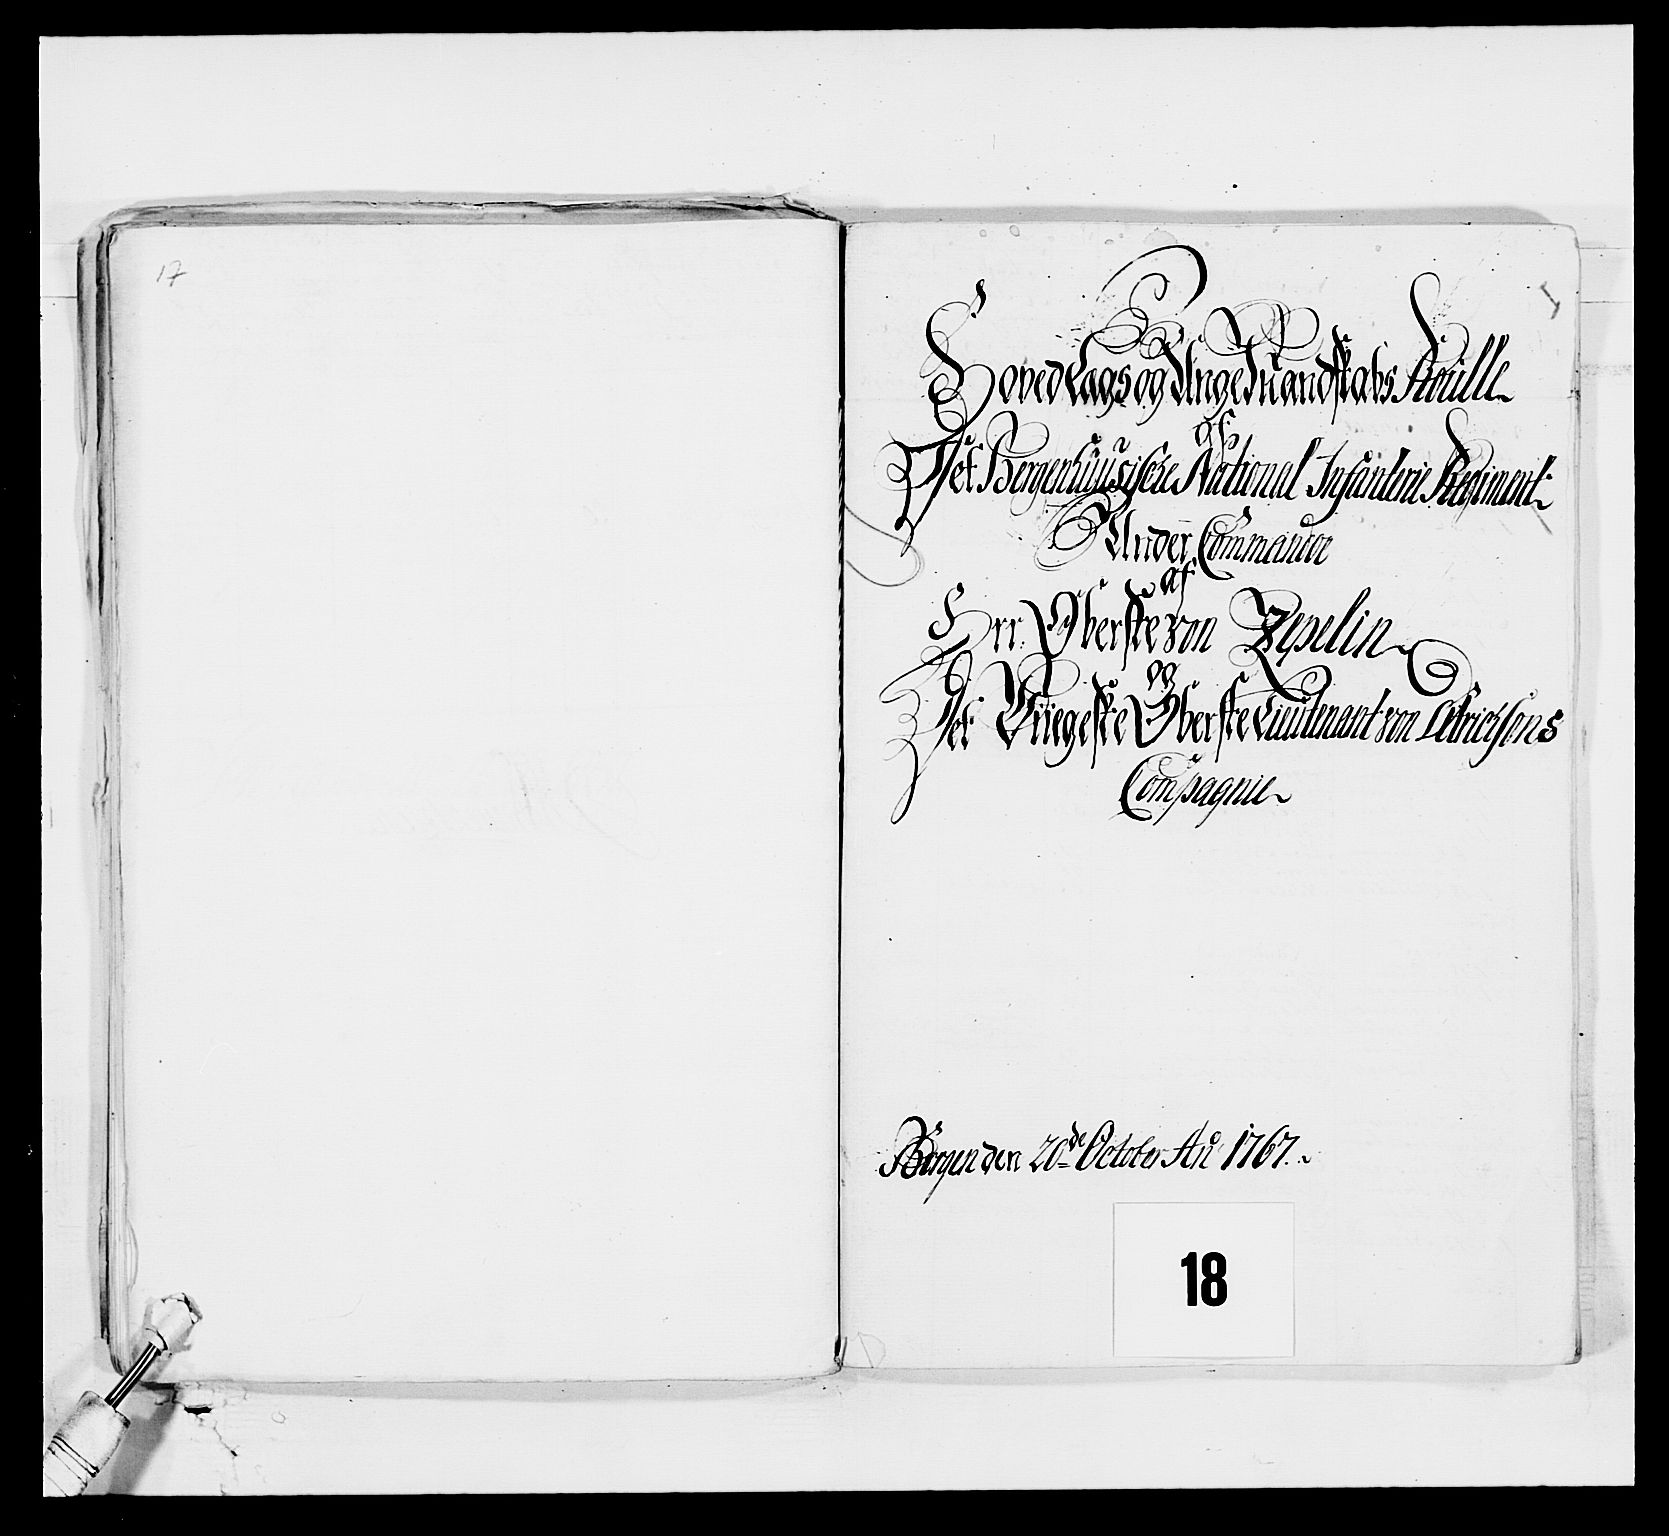 17
1
Hoved Lags og Unge Mandskabs Roulle
af
Det Bergenhuusische National Infanterie Regiment
Under Commando
af
Hrr. Oberste von Zepelin
og
Det Oberste Lieutenant von Ulrichsøns
Compagnie
Bergen den 20de October Aõ 1767.
18